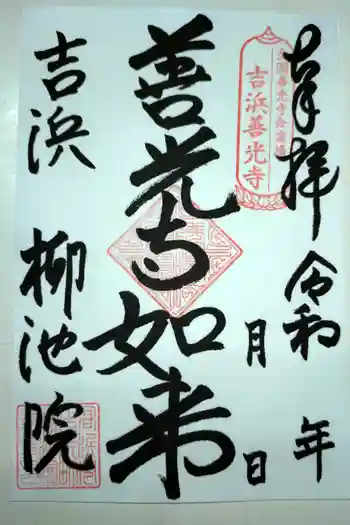 奉拝 令和 年
月 日
吉浜善光寺
善光寺如来
吉浜 柳池院